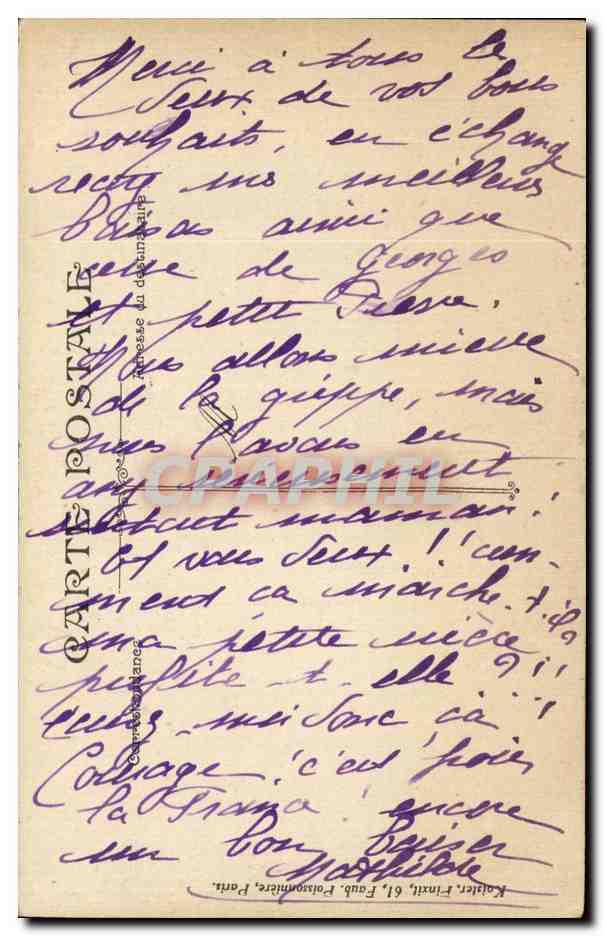 Merci à tous les
deux de vos bons
souhaits, en échange
reçoy mes meilleurs
baisers ainsi que
ceux de Georges
et petit Pierre.
Nous allons mieux
de la grippe, mais
nous l'avons eu
sérieusement
surtout maman!
Et vous deux!! com-
ment ça marche-t-il?
ma petite nièce
profite-t-elle?!!
moi donc ça!
Courage! c'est pour
la France! encore
un bon baiser
Mathilde
CARTE POSTALE
Correspondance
Adresse du destinataire
CPAPHIL
Koister, Finxit, 61, Faub. Poissonnière, Paris.